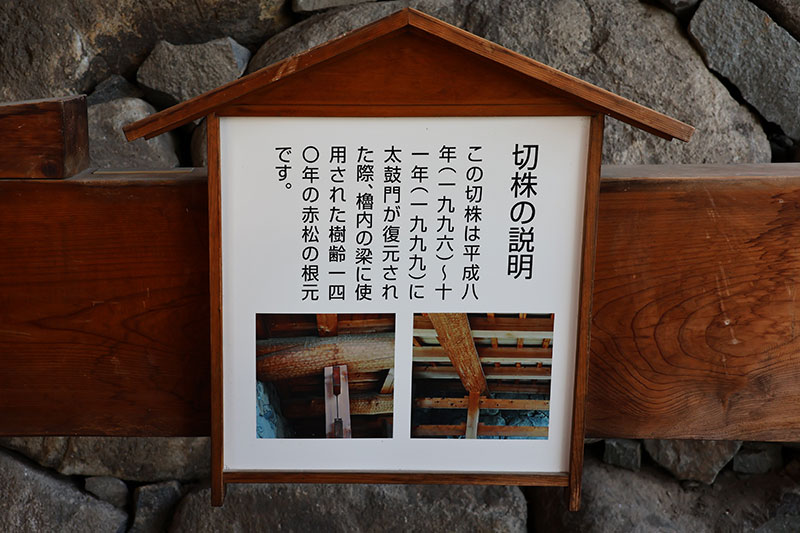 切株の説明
この切株は平成八
年(一九九六)～十
一年(一九九九)に
太鼓門が復元され
た際、櫓内の梁に使
用された樹齢一四
〇年の赤松の根元
です。